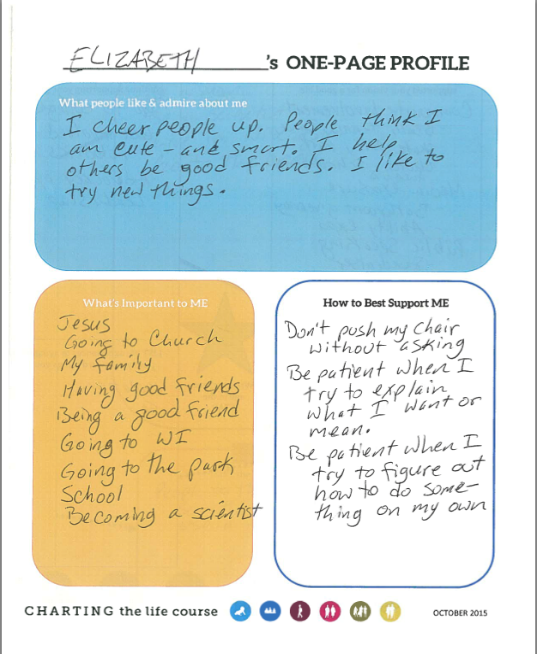 ELIZABETH 's ONE-PAGE PROFILE
What people like & admire about me
I cheer people up. People think I
am cute - and smart. I help
others be good friends. I like to
try new things.
What's Important to ME
Jesus
Going to Church
My family
Having good friends
Being a good friend
Going to WI
Going to the park
School
Becoming a scientist
How to Best Support ME
Don't push my chair
without asking
Be patient when I
try to explain
what I want or
mean.
Be patient when I
try to figure out
how to do some-
thing on my own
CHARTING the life course
OCTOBER 2015